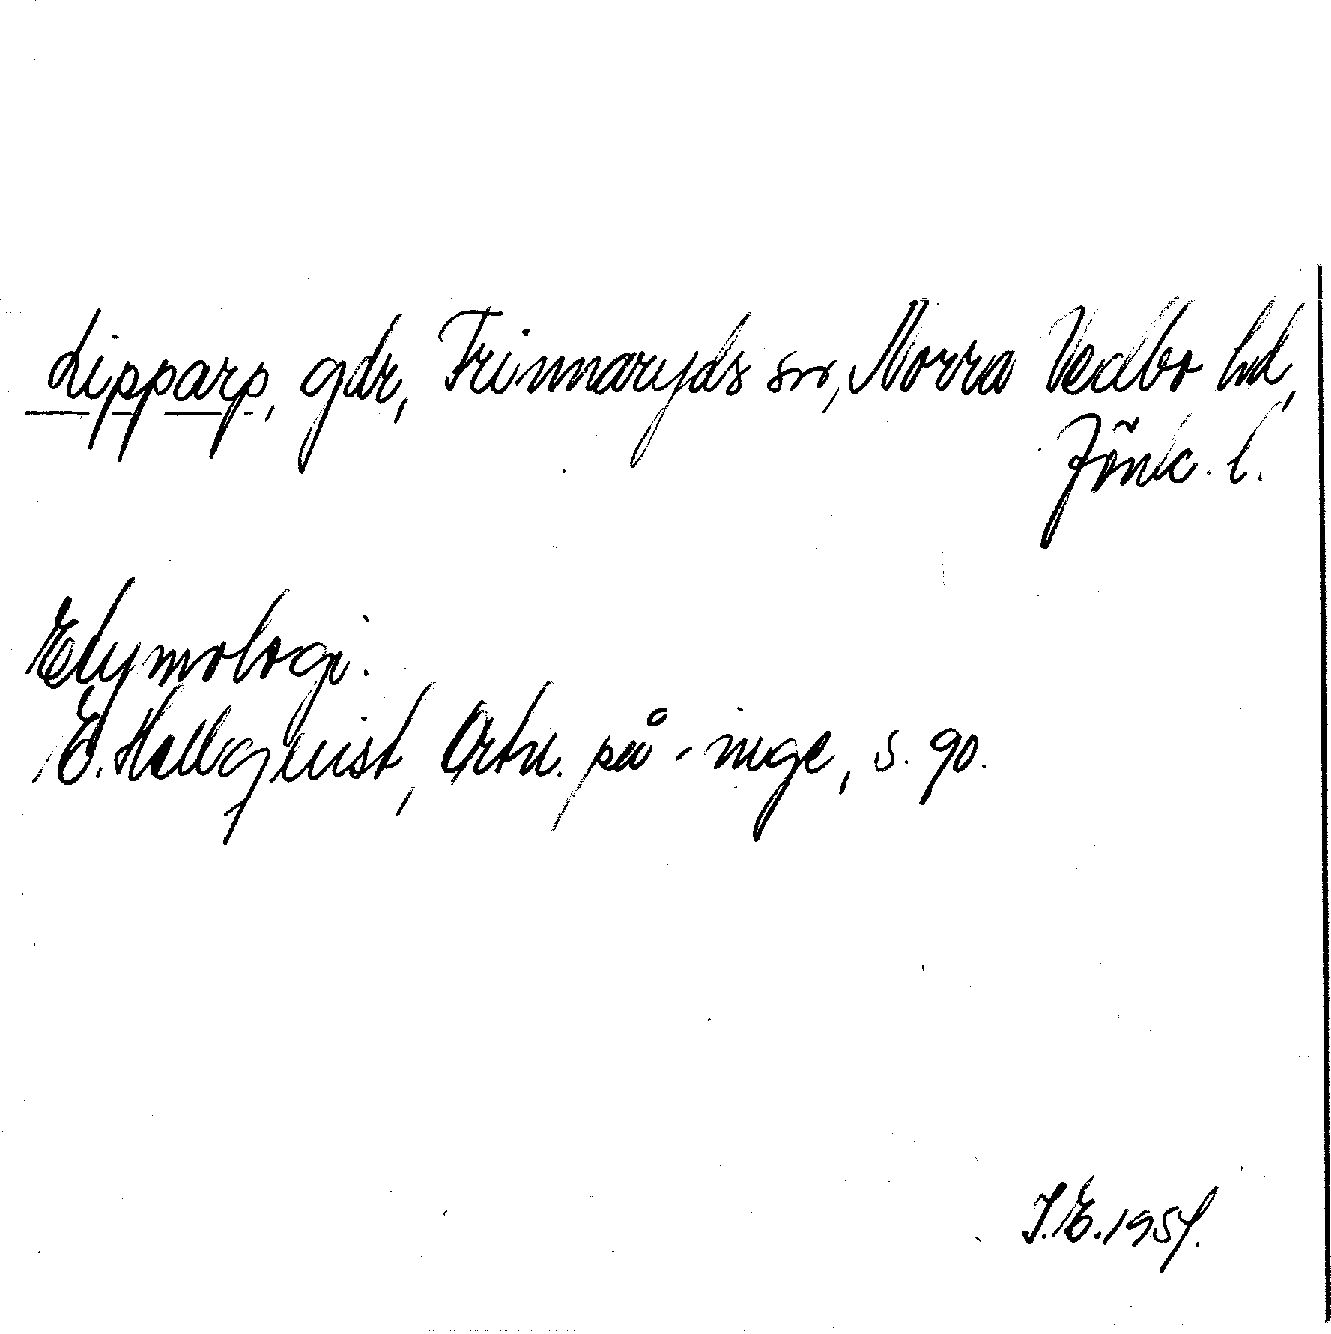 Lipparp, gdr, Frinnaryds sn, Norra Vedbo hd,
Jönk. l.
Etymologi.
E. Hellquist, Ortn. på -inge, s. 90.
J.E. 1954.